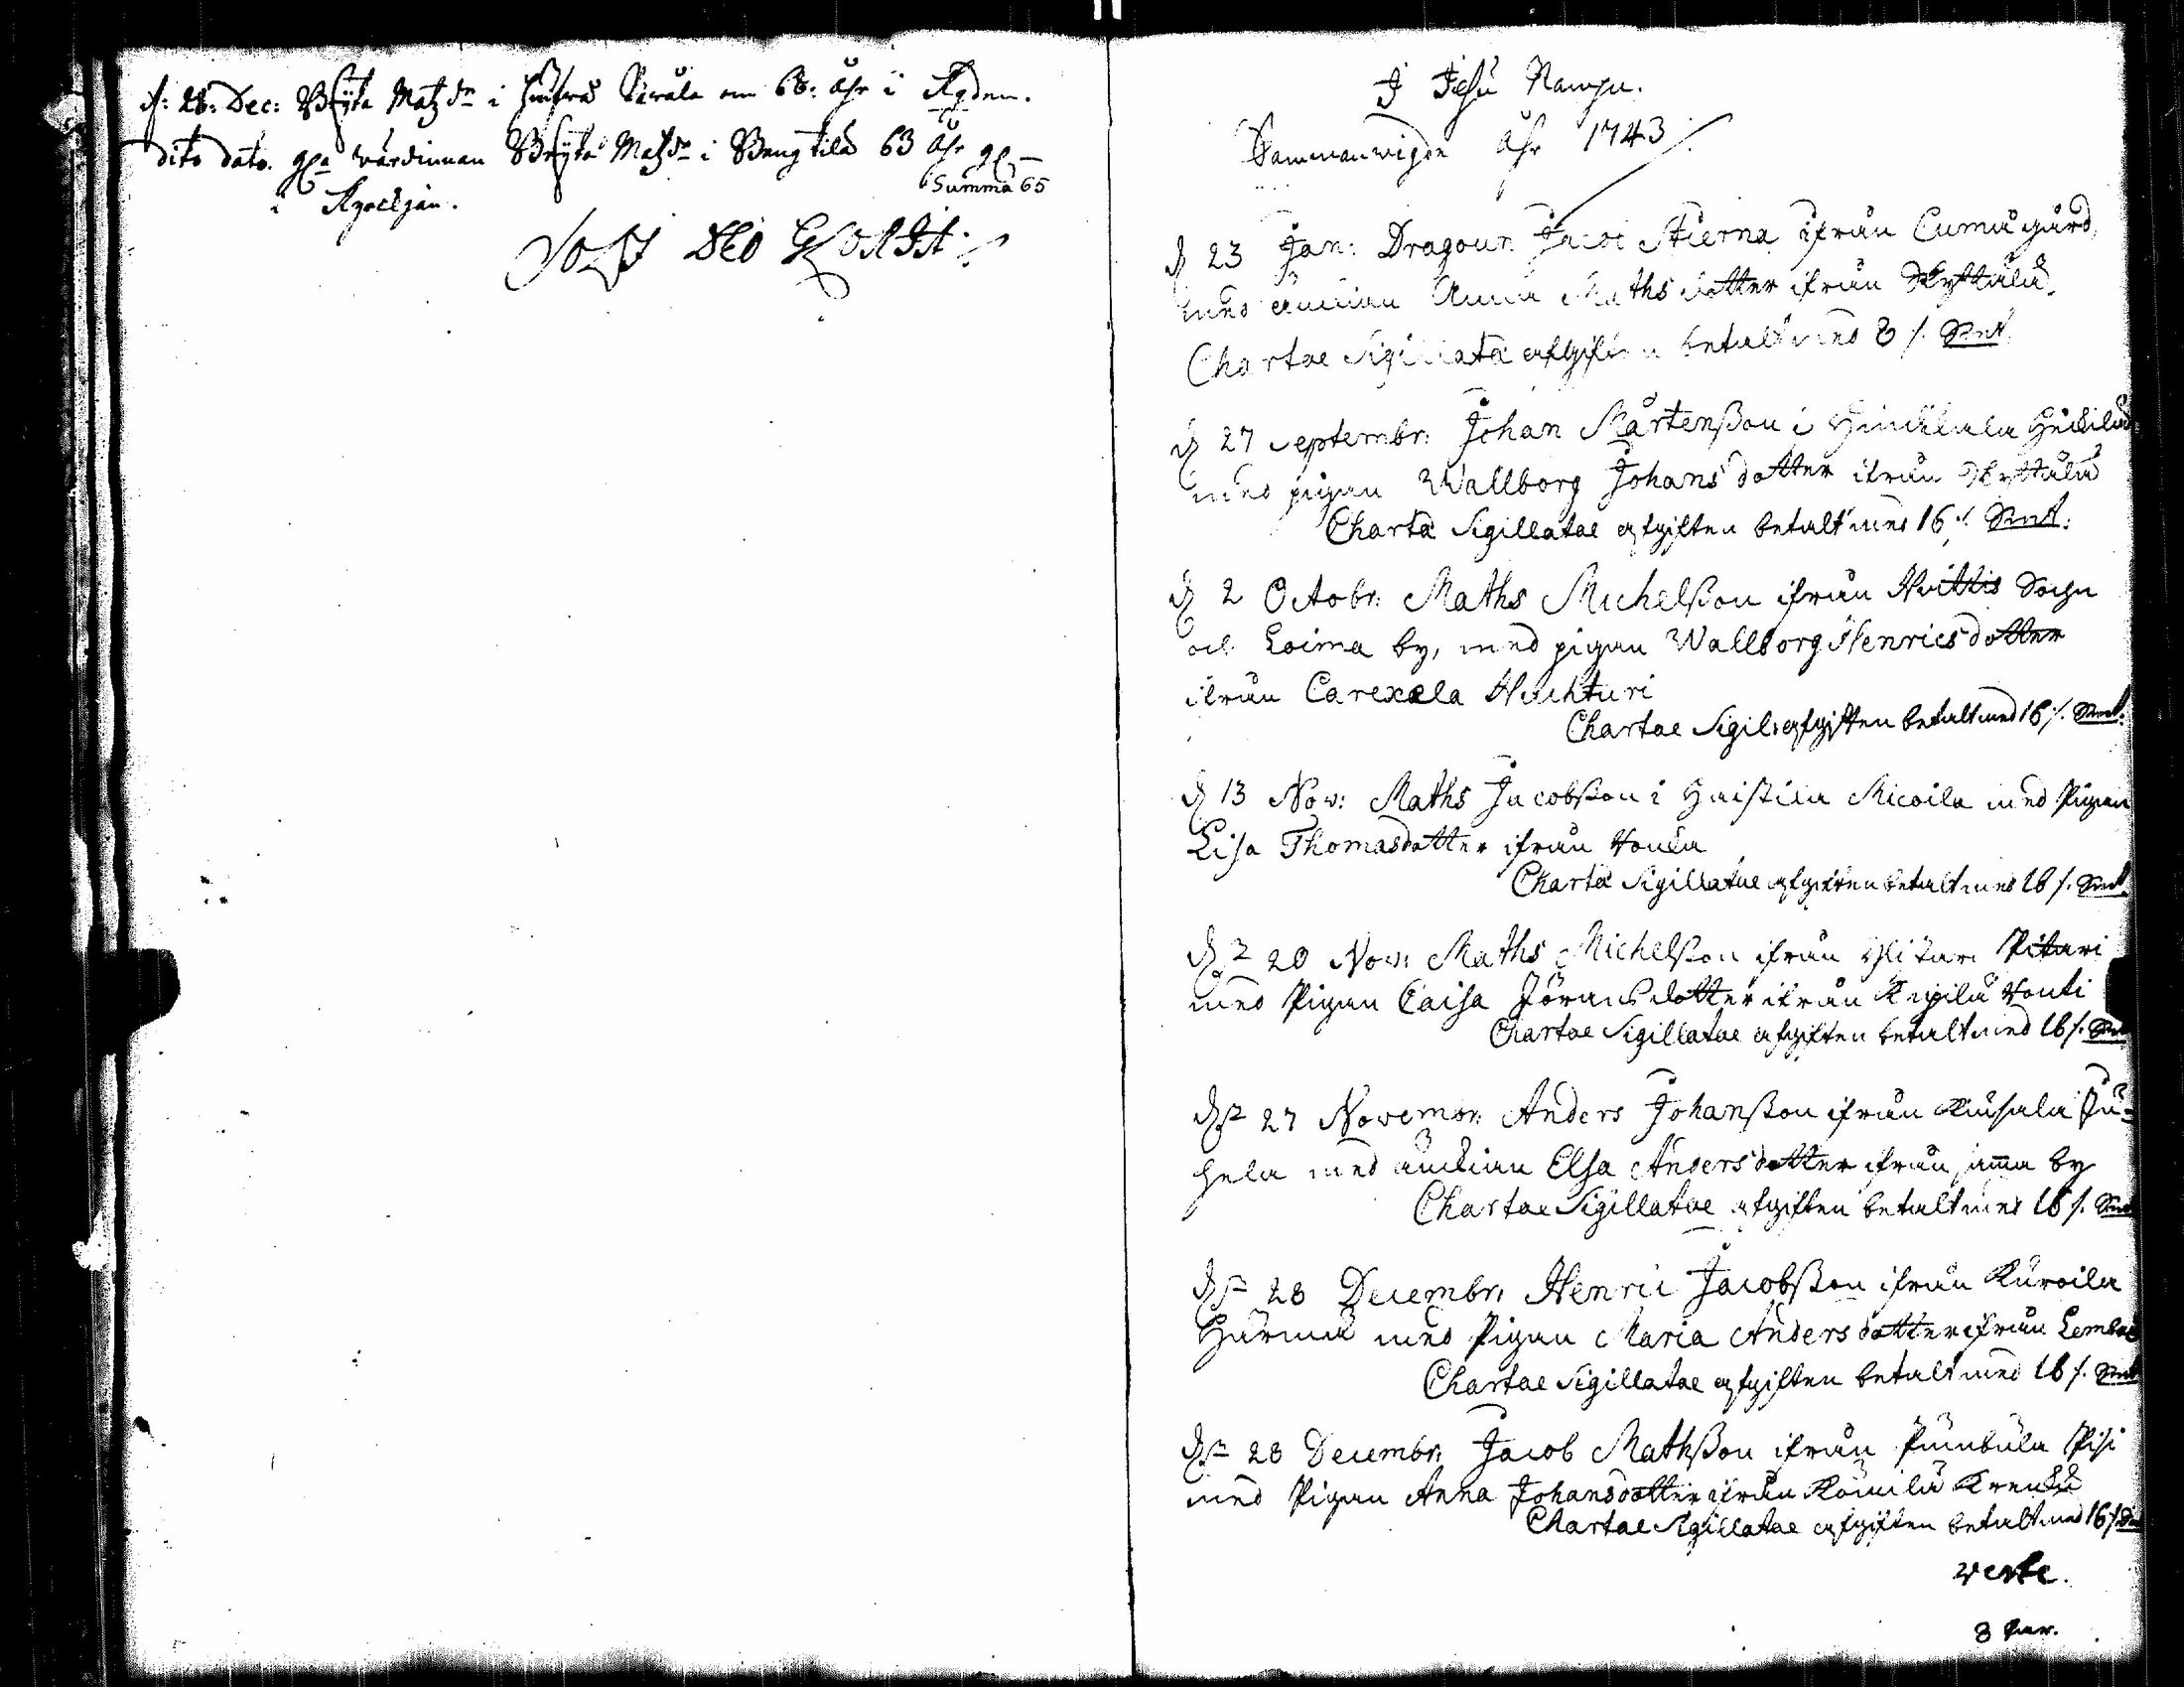 d: 28: Dec: Bryta Matzdr i Sårala om 68: åhr i Kyrkon.
dito dato. wärdinnan Bryta Matzdr i Bengtilä 63 åhr gl
i Summa 65
SOLI DEO GLORIA
I Jesu Nampn.
Sammanwigde åhr 1743
d 23 Jan: Dragoun Jacob Stierna ifrån Cumägård,
med änckian Anna Mathsdotter ifrån Skyttälä,
Chartae Sigillata afgiften betalt med 8 /. Smt.
d 27 Septembr: Johan Mårtensson i Heickilä
med pigan Wallborg Johansdotter ifrån Skyttälä
Charta Sigillatae afgiften betalt med 16 /. Smt:
d 2 Octobr: Maths Michelsson ifrån Huittis Sochn
och Loima by, med pigan Wallborg Henricsdotter
ifrån Carexela Huhturi
Chartae Sigil: afgiften betalt med 16 /. Smt:
d 13 Nov: Maths Jacobsson i Haistila Micoila med Pigan
Lisa Thomasdotter ifrån Vonka
Charta Sigillatae afgiften betalt med 16 /. Smt.
d 20 Nov: Maths Michelsson ifrån Pitari
med Pigan Caisa Jöransdotter ifrån Vonti
Chartae Sigillatae afgiften betalt med 16 /. Smt
d 27 Novembr: Anders Johansson ifrån Ju-
hela med änckian Elsa Andersdotter ifrån sama by
Chartae Sigillatae afgiften betalt med 16 /. Smt
d 28 Decembr: Henric Jacobsson ifrån Kuroila
Härmä med Pigan Maria Andersdotter ifrån
Chartae Sigillatae afgiften betalt med 16 /. Smt
d 28 Decembr: Jacob Mathsson ifrån Pumbula Pisi
med Pigan Anna Johansdotter ifrån Kömilä
Chartae Sigillatae afgiften betalt med 16 /.
verte.
8 par.